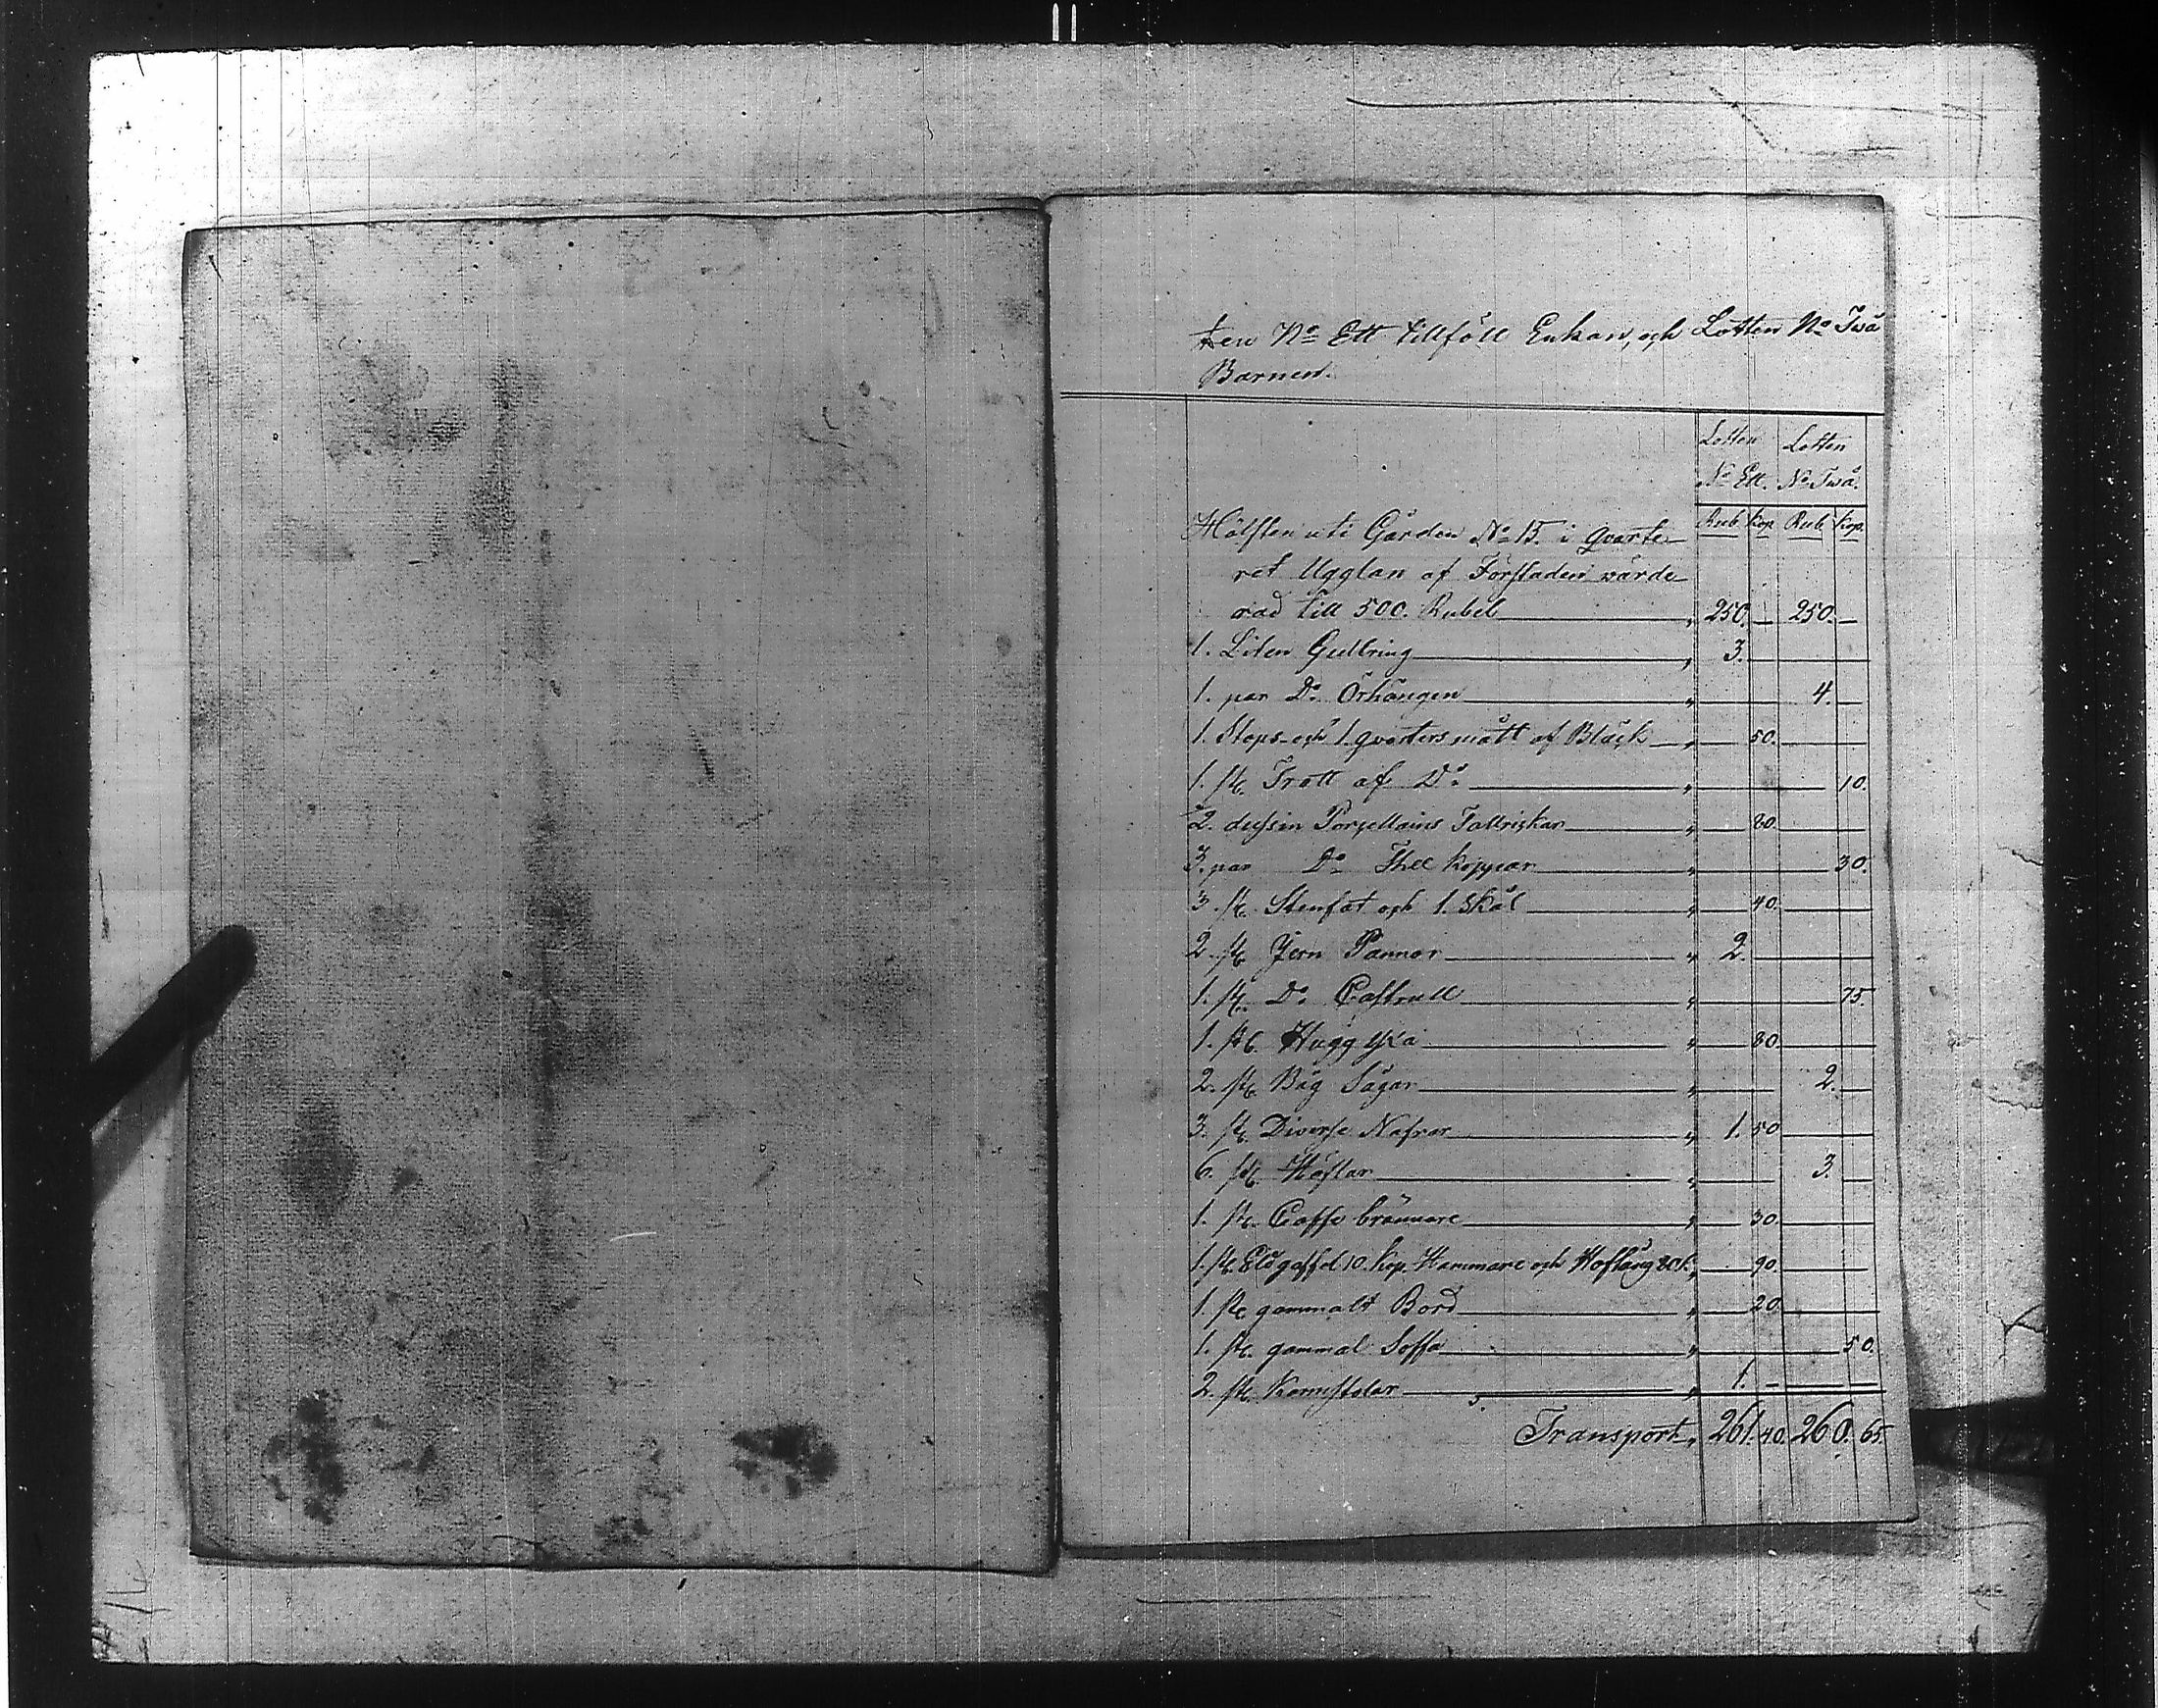 ten No Ett tillföll Enkan, och Lotten No Twå
Barnen.
Lotten Lotten
No Ett. No Twå.
Rub. kop. Rub. kop.
Hälften uti Gården No 15. i qvarte-
ret Ugglan af Förstaden värde-
rad till 500. Rubel " 250. — 250. —
1. Liten Gullring " 3.
1. par Do Örhängen " 4. —
1. Stops- och 1. qvartersmått af Bläck " 50.
1. st. Tratt af Do " 10.
2. dussin Porcellains Tallrickar " 80.
3. par Do Thee koppar " 30.
3. st. Stenfat och 1. Skål " 40.
2. st. Jern Pannor " 2.
1. st. Do Castrull " 75.
1. st. Hugg yxa " 80.
2. st. Båg Sågar " 2. —
3. st. Diverse Nafrar " 1. 50.
6. st. Höflar " 3. —
1. st. Caffe brännare " 30.
1. st. Eldgaffel 10. kop. Hammare och Hoftång 80 k. " 90.
1. st. gammalt Bord " 20.
1. st. gammal Soffa " 50.
2. st. Karmstolar " 1. —
Transport " 261. 40. 260. 65.